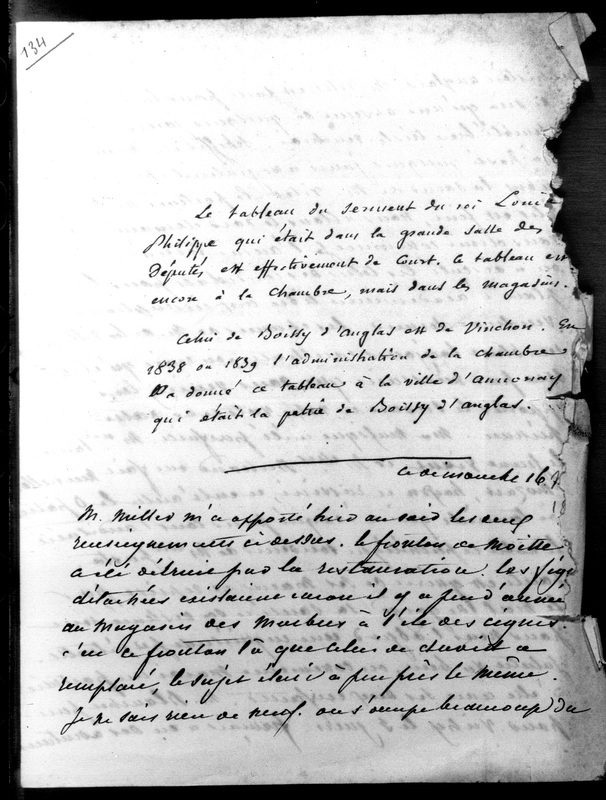 134
Le tableau du serment du roi Louis
Philippe qui était dans la grande salle des
Députés est effectivement de Court. Ce tableau est
encore à la chambre, mais dans les magasins.
Celui de Boissy d'Anglas est de Vinchon. En
1838 ou 1839 l'administration de la chambre
a donné ce tableau à la ville d'annonay
qui était la patrie de Boissy d'anglas.
ce dimanche 16
M. Miller m'a apporté hier au soir les
renseignements ci dessus. le fronton de Moitte
a été détruit par la restauration. les
détachées existaient encore il y a peu d'années
au Magasin des Marbres à l'ile des cignes.
c'en ce fronton là que celui de a
remplacé, le sujet était à peu près le même.
Je ne sais rien de neuf. on s'occupe beaucoup du